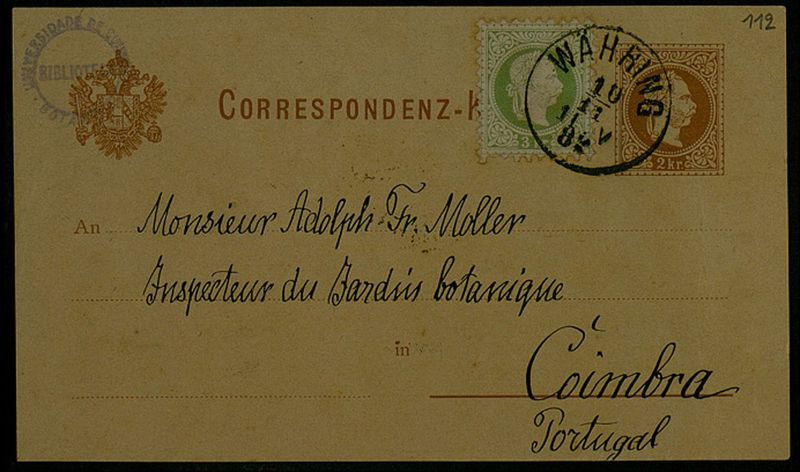 112
UNIVERSIDADE DE
BIBLIOTECA
CORRESPONDENZ-K
WÄHRING
10
11
82
3
2 kr.
An Monsieur Adolph Fr. Moller
Inspecteur du Jardin botanique
in Coimbra
Portugal